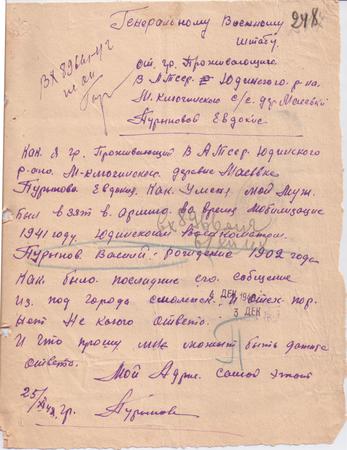 Генеральному Военному
штабу.
248
от гр. Проживающиго
В А.Тсср. Юдинского р-на
М.ключинского с/с. дер Маевки
Пурыновой Евдокие
Как я гр. Проживающий В А Тсср. Юдинского
р-она. М-ключинского. деревне Маевке
Пурынова. Евдокия. Как. У меня мой Муж.
был взят в армию. во время мобилизации
1941 году. Юдинским Райвоенкоматом.
Пурынов Васий. рождение 1902 года
Как было последние его сообщение
из под города смоленск. и стех пор.
4 ДЕК 194
нет Не какого ответо.
3 ДЕК
И что прошу мне может быть дадите
ответо.
Мой Адрис. самой этот
25/
гр. Пурынова